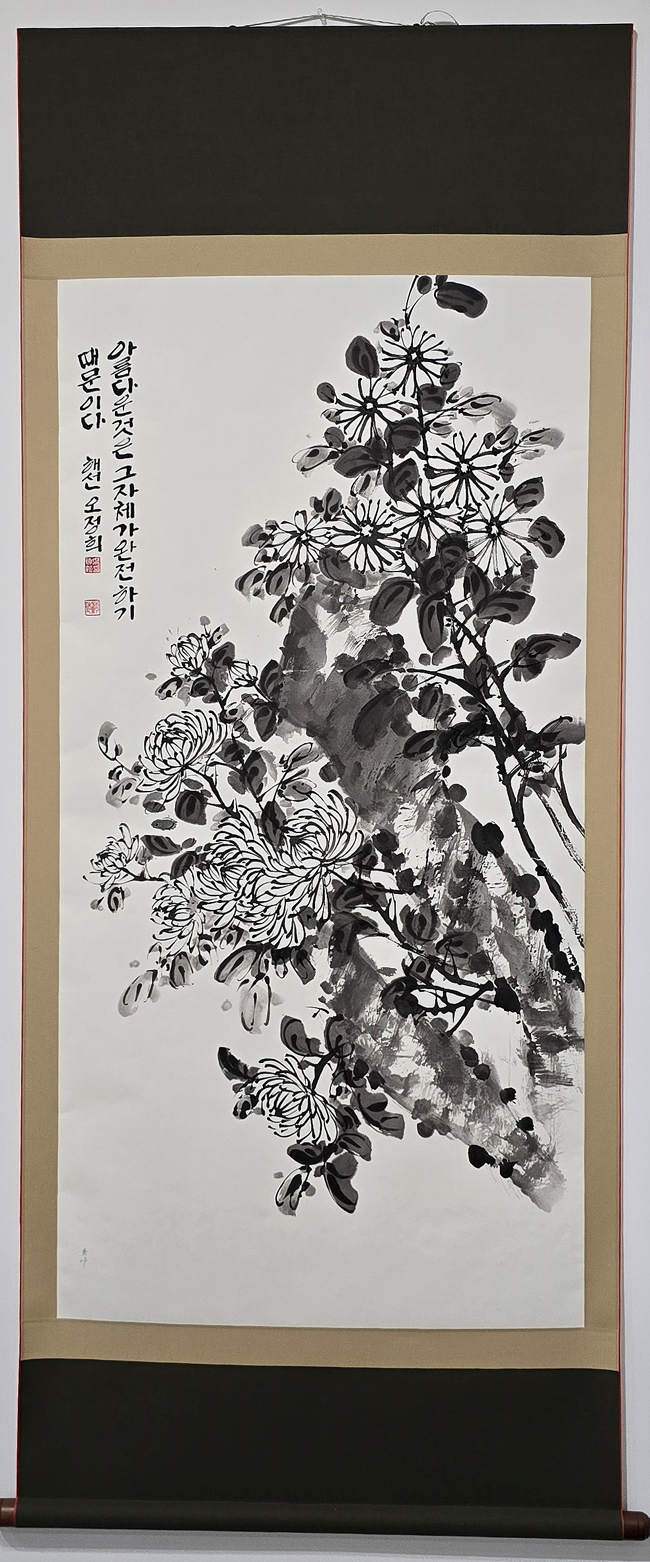 아름다운것은 그 자체가 완전하기
때문이다 해선 오정희